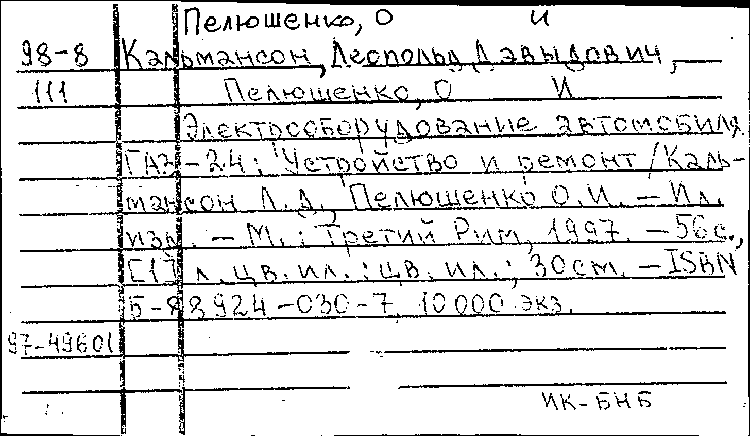 Пелюшенко, О И
98-8 Кальмансон, Леопольд Давыдович,
111 Пелюшенко, О И
Электрооборудование автомобиля
ГАЗ-24: Устройство и ремонт / Каль-
мансон Л.Д., Пелюшенко О.И. — Ил.
изд. — М.: Третий Рим, 1997. — 56с.,
[1] л. цв. ил. : цв. ил. ; 30см. — ISBN
5-88924-030-7 10000 экз.
97-49601
ИК-БНБ